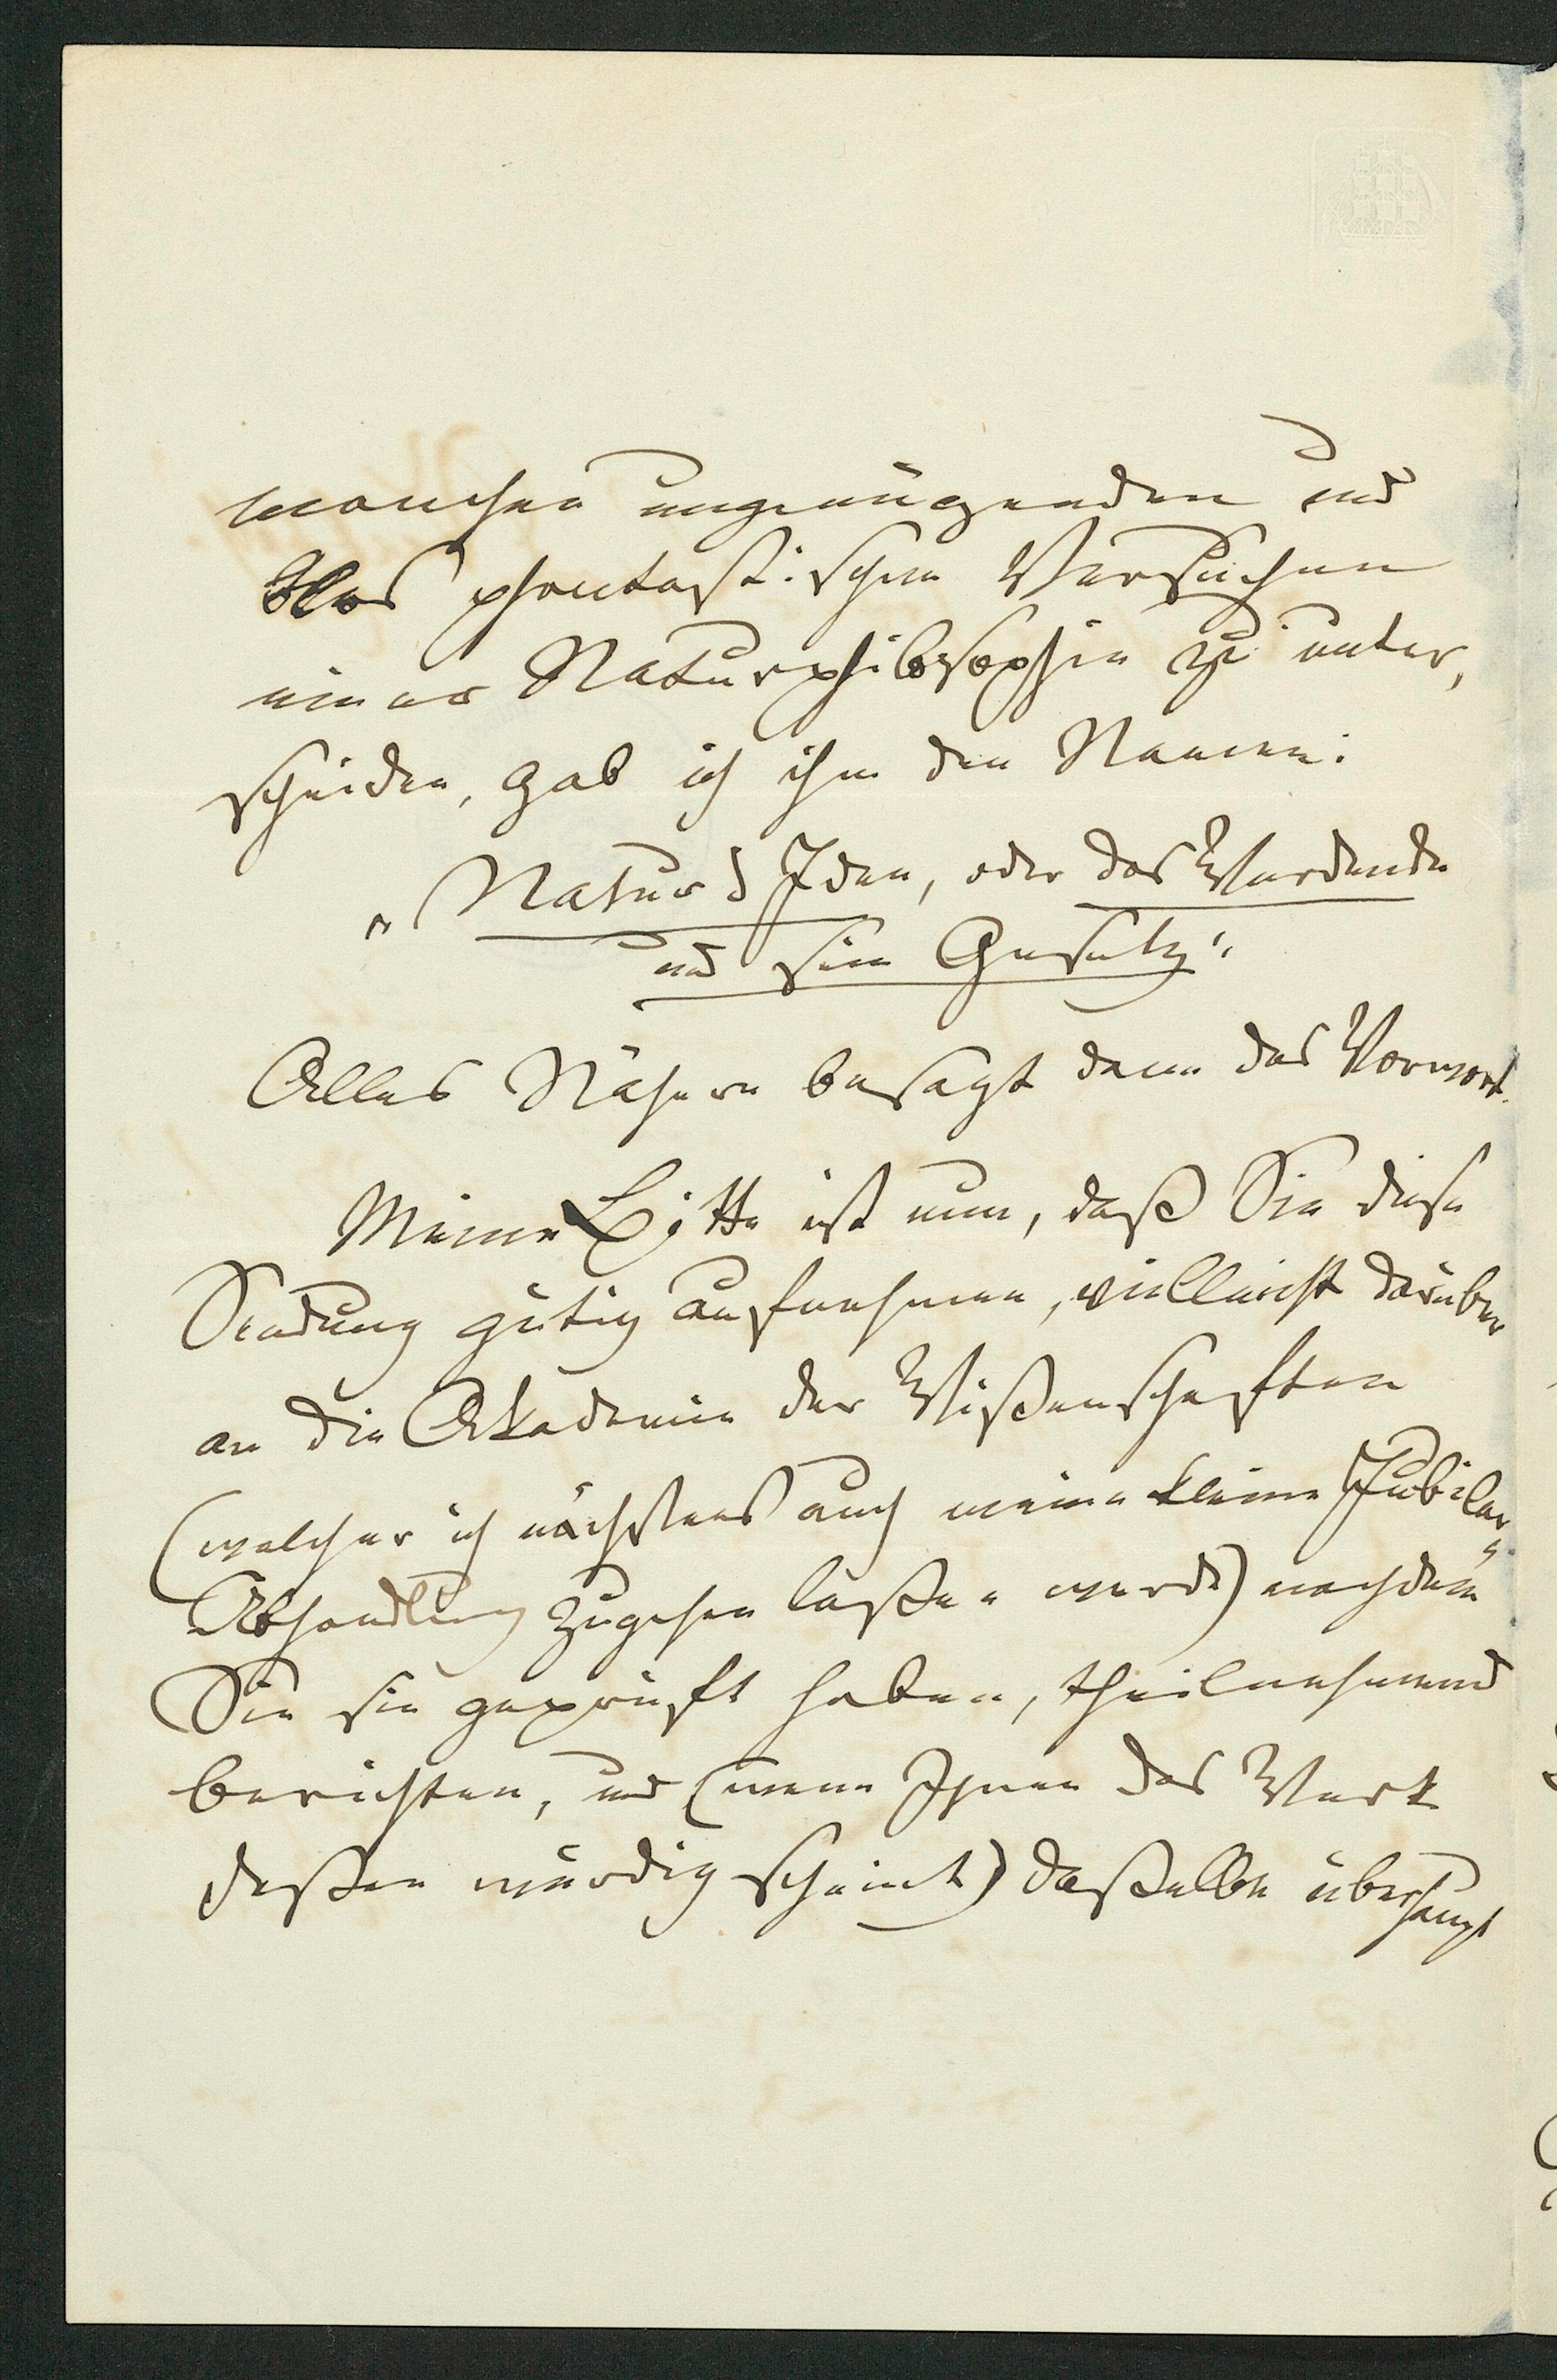 manchen ungenügenden und
blos phantastischen Versuchen
einer Naturphilosophie zu unter,
scheiden, gab ich ihm den Namen:
„Natur & Idee, oder das Werdende
und sein Gesetz“
Alles Nähere besagt dann das Vorwort.
Meine Bitte ist nun, daß Sie diese
Sendung gütig aufnehmen, vielleicht darüber
an die Akademie der Wißenschaften
(welcher ich nächstens auch meine kleine Jubilar„
Abhandlung zugehen laßen werde) nachdem
Sie sie geprüft haben, theilnehmend
berichten, und (wenn Ihnen das Werk
deßen würdig scheint) daßelbe überhaupt